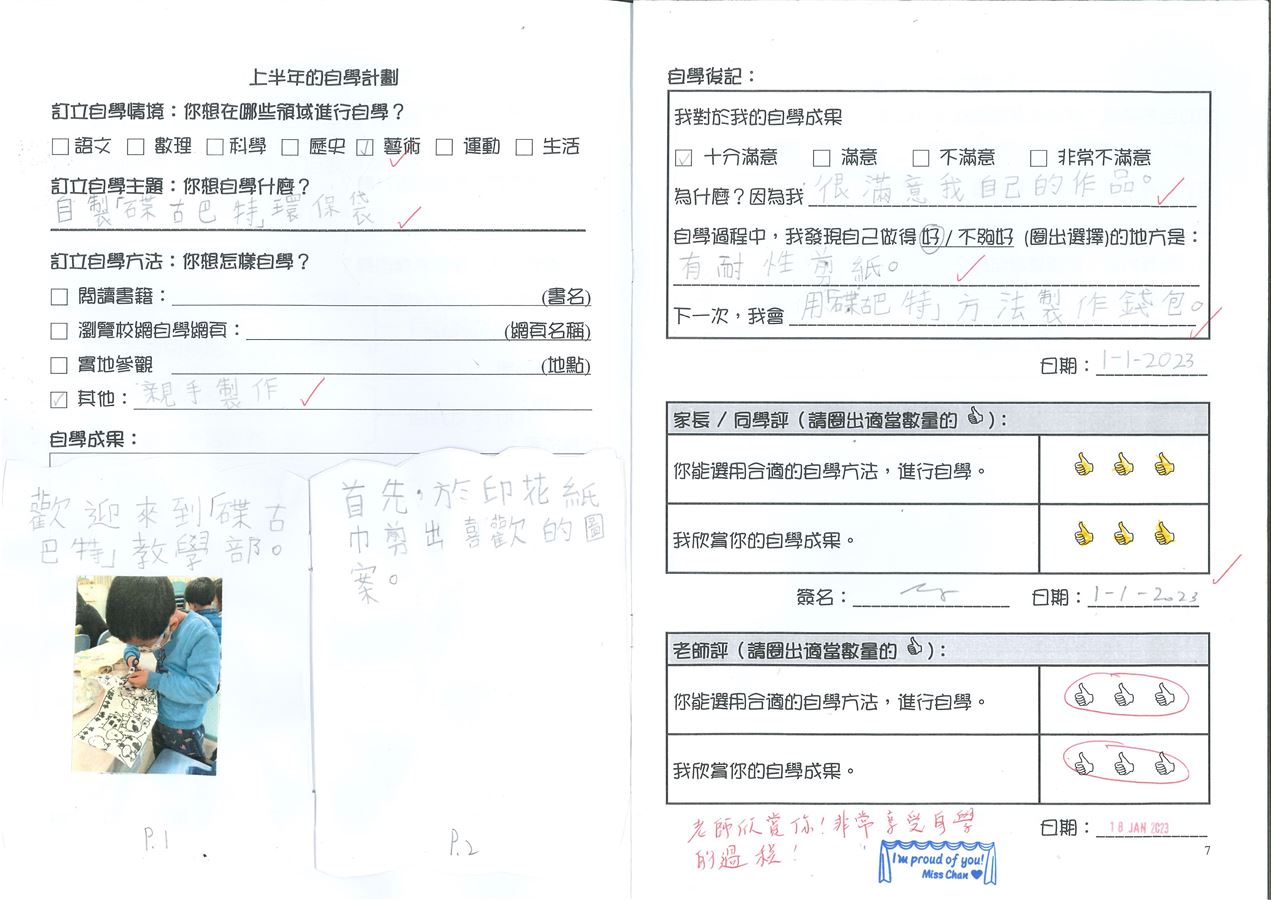 上半年的自學計劃
訂立自學情境：你想在哪些領域進行自學？
語文 數理 科學 歷史 藝術 運動 生活
訂立自學主題：你想自學什麼？
自製「碟古巴特」環保袋
訂立自學方法：你想怎樣自學？
閱讀書籍： (書名)
瀏覽校網自學網頁： (網頁名稱)
實地參觀 (地點)
其他：親手製作
自學成果：
歡迎來到「碟古
巴特」教學部。
P.1
首先，於印花紙
巾剪出喜歡的圖
案。
P.2
自學後記：
我對於我的自學成果
十分滿意 滿意 不滿意 非常不滿意
為什麼？因為我 很滿意我自己的作品。
自學過程中，我發現自己做得 好 / 不夠好 (圈出選擇)的地方是：
有耐性剪紙。
下一次，我會 用「碟巴特」方法製作錢包。
日期：1-1-2023
家長 / 同學評（請圈出適當數量的 ）：
你能選用合適的自學方法，進行自學。
我欣賞你的自學成果。
簽名： 日期：1-1-2023
老師評（請圈出適當數量的 ）：
你能選用合適的自學方法，進行自學。
我欣賞你的自學成果。
日期：18 JAN 2023
老師欣賞你！非常享受自學
的過程！
I'm proud of you!
Miss Chan
7